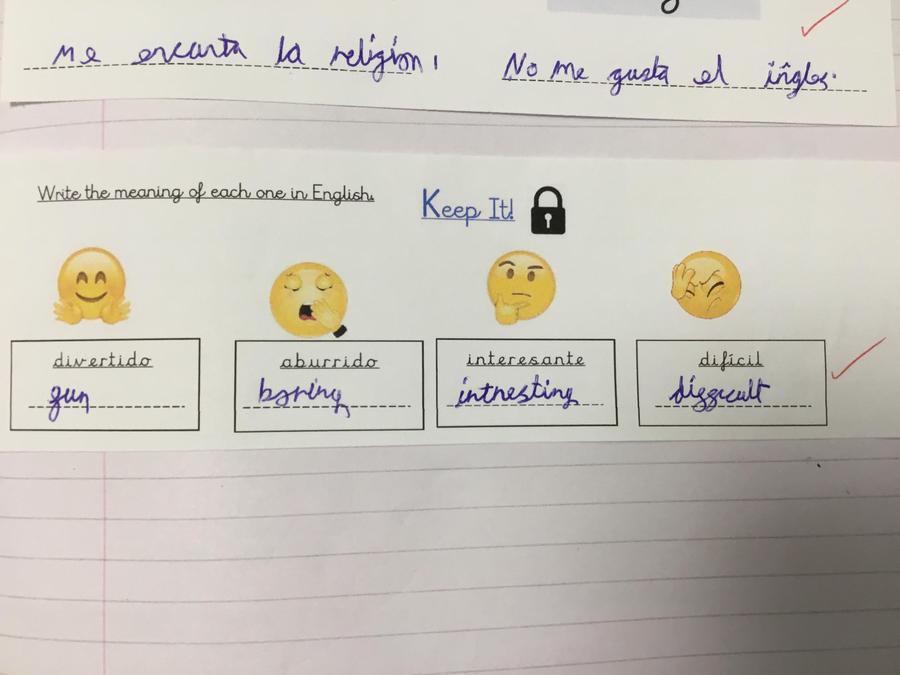 Me encanta la religion,
No me gusta el ingles.
Write the meaning of each one in English.
Keep It!
divertido
aburrido
interesante
difícil
fun
boring
intresting
difficult